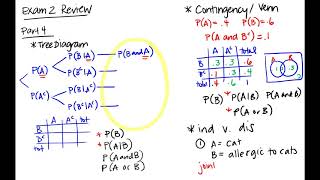 Exam 2 Review
Part 4
* Tree Diagram
P(A)
P(Aᶜ)
P(B|A)
P(Bᶜ|A)
P(B|Aᶜ)
P(Bᶜ|Aᶜ)
P(B and A)
A Aᶜ tot
B
Bᶜ
tot
* P(B)
* P(A|B)
P(A and B)
P(A or B)
* Contingency/Venn
P(A) = .4 P(B) = .6
P(A and Bᶜ) = .1
A Aᶜ total
B .3 .3 .6
Bᶜ .1 .3 .4
tot .4 .6 1
P(B) P(A|B) P(A and B)
P(A or B)
* ind v. dis
① A = cat
B = allergic to cats
joint